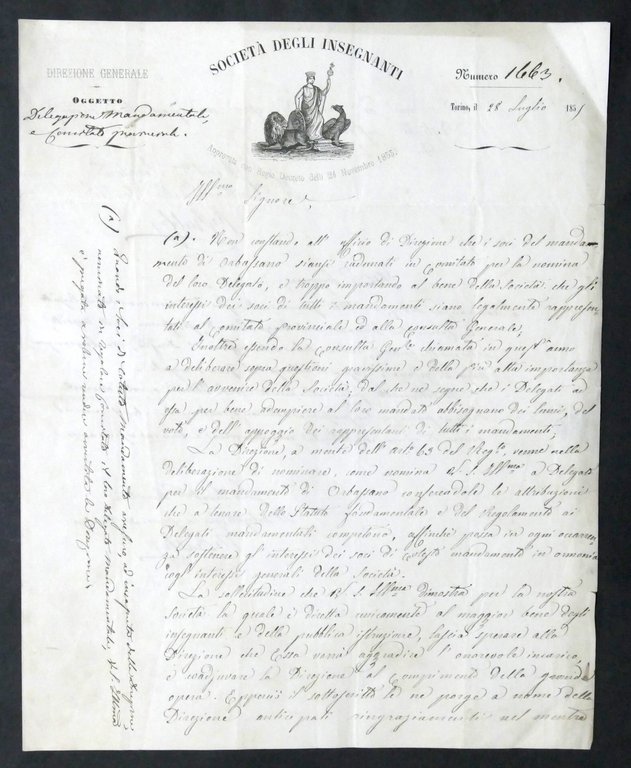 SOCIETÀ DEGLI INSEGNANTI
DIREZIONE GENERALE
OGGETTO
Delegazione Mandamentale,
e Comitato provinciale.
Numero 1663.
Torino, il 28 Luglio 185
Approvata con Regio Decreto delli 26 Novembre 1853.
Ill.mo Signore,
(a). Non constando all' officio di Direzione che i soci del mandamento
di Orbassano siansi radunati in Comitato per la nomina
del loro Delegato, e troppo importando al bene della Società che gli
interessi dei soci di tutti i mandamenti siano legalmente rappresentati
al comitato provinciale ed alla consulta Generale,
Inoltre essendo la Consulta Gen.le chiamata in quest' anno
a deliberare sopra questioni gravissime e della più alta importanza
per l'avvenire della Società, dal che ne segue che i Delegati ad
essa per bene adempiere al loro mandato abbisognano dei lumi, del
voto, e dell' appoggio dei rappresentanti di tutti i mandamenti;
La Direzione, a mente dell' art.o 63 del Reg.to venne nella
deliberazione di nominare, come nomina V. S. Ill.ma a Delegato
per il mandamento di Orbassano conferendole le attribuzioni
che a tenore dello Statuto fondamentale e del Regolamento ai
Delegati mandamentali competono, affinché possa in ogni occorrenza
sostenere gl' interessi dei soci di codesto mandamento in armonia
cogl' interessi generali della Società.
La sollecitudine che V. S. Ill.ma dimostra per la nostra
Società la quale è diretta unicamente al maggior bene degli
insegnanti e della pubblica istruzione, lascia sperare alla
Direzione che Essa vorrà aggradire l' onorevole incarico,
e coadjuvare la Direzione al compimento della grande
opera. Epperciò il sottoscritto le ne porge a nome della
Direzione anticipati ringraziamenti nel mentre
(a) Quando i Soci di codesto Mandamento avessero ad
nominato in regolare Comitato il loro Delegato Mandamentale, V. S. Ill.ma
è pregata a volerne rendere avvertita la Direzione